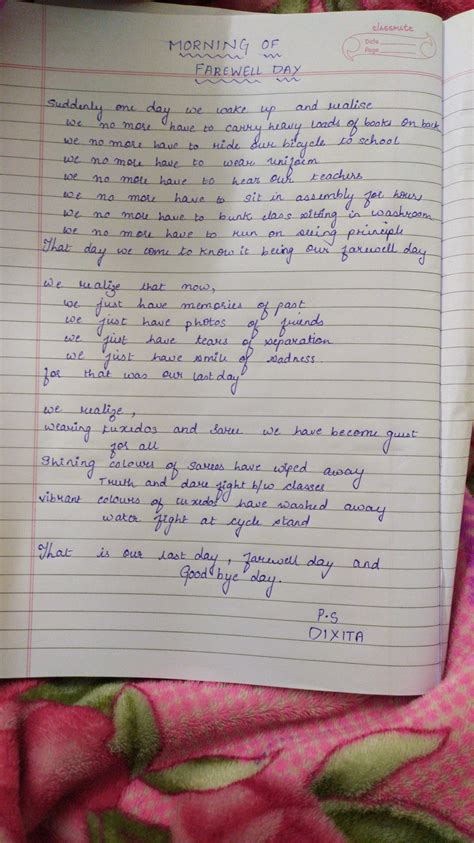 classmate
Date
Page
MORNING OF
FAREWELL DAY
Suddenly one day we wake up and realise
we no more have to carry heavy loads of books on back
we no more have to ride our bicycle to school
we no more have to wear uniform
we no more have to hear our teachers
we no more have to sit in assembly for hours
we no more have to bunk class sitting in washroom
we no more have to run on seing principle
That day we come to know it being our farewell day
we realize that now,
we just have memories of past
we just have photos of friends
we just have tears of separation
we just have smile of sadness
for that was our last day
we realize,
wearing tuxidos and saree we have become guest
for all
Shining colours of sarees have wiped away
Truth and dare fight b/w classes
vibrant colours of tuxedos have washed away
water fight at cycle stand
That is our last day, farewell day and
Good bye day.
P.S
DIXITA